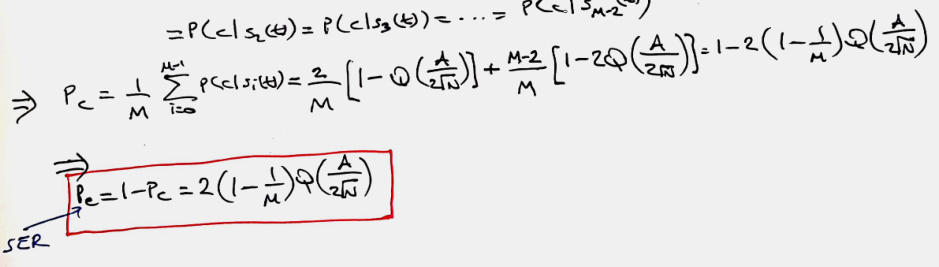 = P(c|s₂(t)) = P(c|s₃(t)) = ... = P(c|s_{M-2}(t))
⇒ P_c = \frac{1}{M} \sum_{i=0}^{M-1} P(c|s_i(t)) = \frac{2}{M} [1 - Q(\frac{A}{2\sqrt{N}})] + \frac{M-2}{M} [1 - 2Q(\frac{A}{2\sqrt{N}})] = 1 - 2(1 - \frac{1}{M}) Q(\frac{A}{2\sqrt{N}})
⇒
P_e = 1 - P_c = 2(1 - \frac{1}{M}) Q(\frac{A}{2\sqrt{N}})
SER